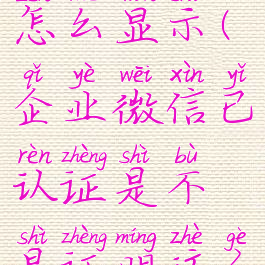 怎么显示(
qǐ yè wēi xìn yǐ
企业微信已
rèn zhèng shì bù
认证是不
shì zhèng míng zhè gè
是证明这个